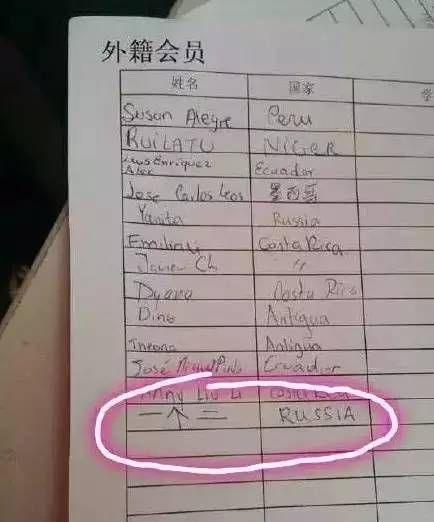 外籍会员
姓名 国家 学
Susan Alegre Peru
RUILATU NIGER
Luis Enriquez
Alex Ecuador
Jose Carlos Leos 墨西哥
Yanita Russia
Emilia Costa Rica
Javier Ch "
Dyana Costa Rica
Dino Antigua
Antigua
José Ecuador
Liu Li Costa Rica
一个二 RUSSIA